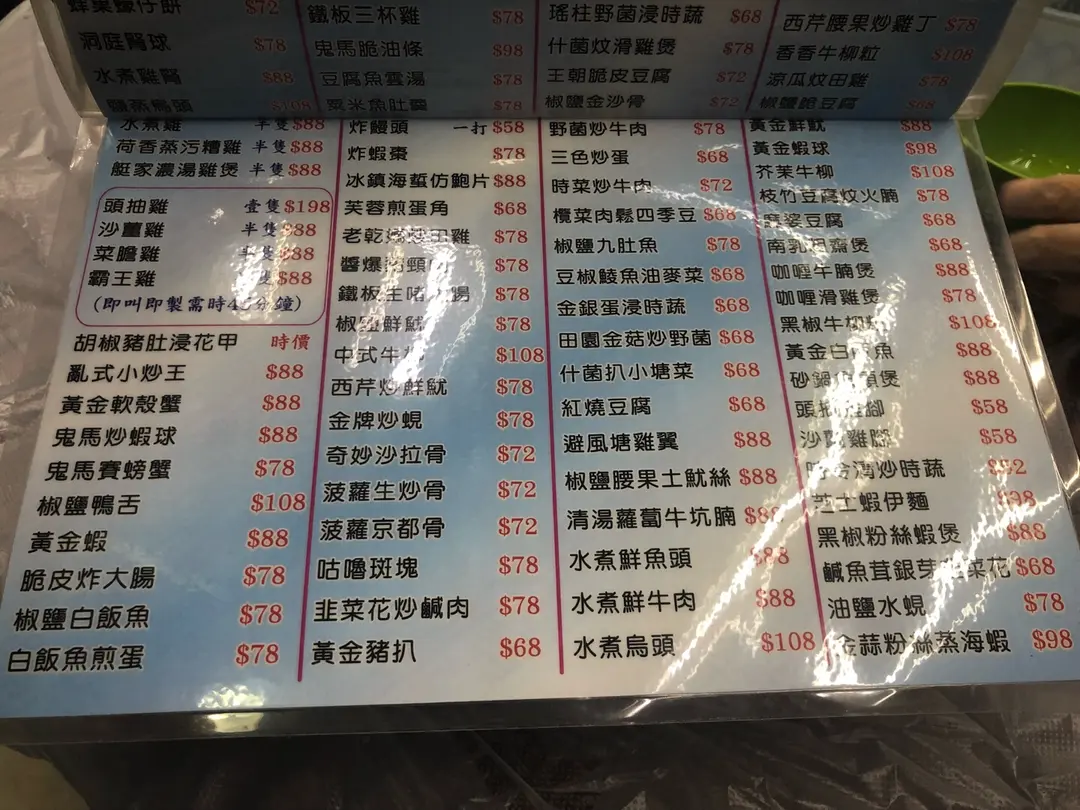 蠔仔餅 $72
洞庭腎球 $78
水煮雞腎 $88
烏頭 $108
鐵板三杯雞 $78
鬼馬脆油條 $98
豆腐魚雲湯 $78
粟米魚肚羹 $78
瑤柱野菌浸時蔬 $68
什菌炆滑雞煲 $78
王朝脆皮豆腐 $72
椒鹽金沙骨 $72
西芹腰果炒雞丁 $78
香香牛柳粒 $108
涼瓜炆田雞 $78
椒鹽脆豆腐 $68
水煮雞 半隻$88
荷香蒸污糟雞 半隻$88
艇家濃湯雞煲 半隻$88
頭抽雞 壹隻$198
沙薑雞 半隻$88
菜膽雞 半隻$88
霸王雞 隻$88
(即叫即製需時45分鐘)
胡椒豬肚浸花甲 時價
亂式小炒王 $88
黃金軟殼蟹 $88
鬼馬炒蝦球 $88
鬼馬賽螃蟹 $78
椒鹽鴨舌 $108
黃金蝦 $88
脆皮炸大腸 $78
椒鹽白飯魚 $78
白飯魚煎蛋 $78
炸饅頭 一打$58
炸蝦棗 $78
冰鎮海蜇仿鮑片 $88
芙蓉煎蛋角 $68
老乾媽炒田雞 $78
醬爆豬頸肉 $78
鐵板生啫大腸 $78
椒鹽鮮魷 $78
中式牛柳 $108
西芹炒鮮魷 $78
金牌炒蜆 $78
奇妙沙拉骨 $72
菠蘿生炒骨 $72
菠蘿京都骨 $72
咕嚕斑塊 $78
韭菜花炒鹹肉 $78
黃金豬扒 $68
野菌炒牛肉 $78
三色炒蛋 $68
時菜炒牛肉 $72
欖菜肉鬆四季豆 $68
椒鹽九肚魚 $78
豆椒鯪魚油麥菜 $68
金銀蛋浸時蔬 $68
田園金菇炒野菌 $68
什菌扒小塘菜 $68
紅燒豆腐 $68
避風塘雞翼 $88
椒鹽腰果土魷絲 $88
清湯蘿蔔牛坑腩 $88
水煮鮮魚頭 $88
水煮鮮牛肉 $88
水煮烏頭 $108
黃金鮮魷 $88
黃金蝦球 $98
芥茉牛柳 $108
枝竹豆腐炆火腩 $78
麻婆豆腐 $68
南乳粗齋煲 $68
咖喱牛腩煲 $88
咖喱滑雞煲 $78
黑椒牛柳 $108
黃金白飯魚 $88
砂鍋魚頭煲 $88
頭抽雞腳 $58
沙薑雞腳 $58
炒時蔬 $52
芝士蝦伊麵 $98
黑椒粉絲蝦煲 $88
鹹魚茸銀芽炒菜花 $68
油鹽水蜆 $78
金蒜粉絲蒸海蝦 $98